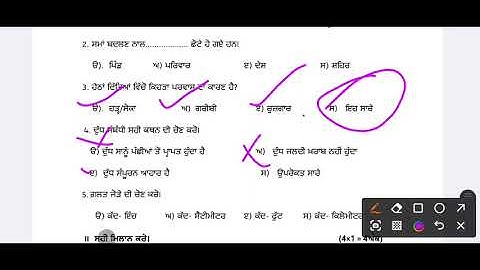 2. ਸਮਾਂ ਬਦਲਣ ਨਾਲ.................. ਛੋਟੇ ਹੋ ਗਏ ਹਨ।
ੳ). ਪਿੰਡ ਅ) ਪਰਿਵਾਰ ੲ) ਦੇਸ ਸ) ਸ਼ਹਿਰ
3. ਹੇਠਾਂ ਦਿੱਤਿਆਂ ਵਿੱਚੋਂ ਕਿਹੜਾ ਪਰਵਾਸ ਦਾ ਕਾਰਣ ਹੈ?
ੳ). ਹੜ੍ਹ/ਸੋਕਾ ਅ) ਗਰੀਬੀ ੲ) ਰੁਜ਼ਗਾਰ ਸ) ਇਹ ਸਾਰੇ
4. ਦੁੱਧ ਸੰਬੰਧੀ ਸਹੀ ਕਥਨ ਦੀ ਚੋਣ ਕਰੋ।
ੳ) ਦੁੱਧ ਸਾਨੂੰ ਪੰਛੀਆਂ ਤੋਂ ਪ੍ਰਾਪਤ ਹੁੰਦਾ ਹੈ ਅ) ਦੁੱਧ ਜਲਦੀ ਖ਼ਰਾਬ ਨਹੀਂ ਹੁੰਦਾ
ੲ) ਦੁੱਧ ਸੰਪੂਰਨ ਆਹਾਰ ਹੈ ਸ) ਉਪਰੋਕਤ ਸਾਰੇ
5. ਗਲਤ ਜੋੜੇ ਦੀ ਚੋਣ ਕਰੋ।
ੳ) ਕੱਦ- ਇੰਚ ਅ) ਕੱਦ- ਸੈਂਟੀਮੀਟਰ ੲ) ਕੱਦ- ਫੁੱਟ ਸ) ਕੱਦ- ਕਿਲੋਮੀਟਰ
II ਸਹੀ ਮਿਲਾਨ ਕਰੋ। (4x1 = 4ਅੰਕ)